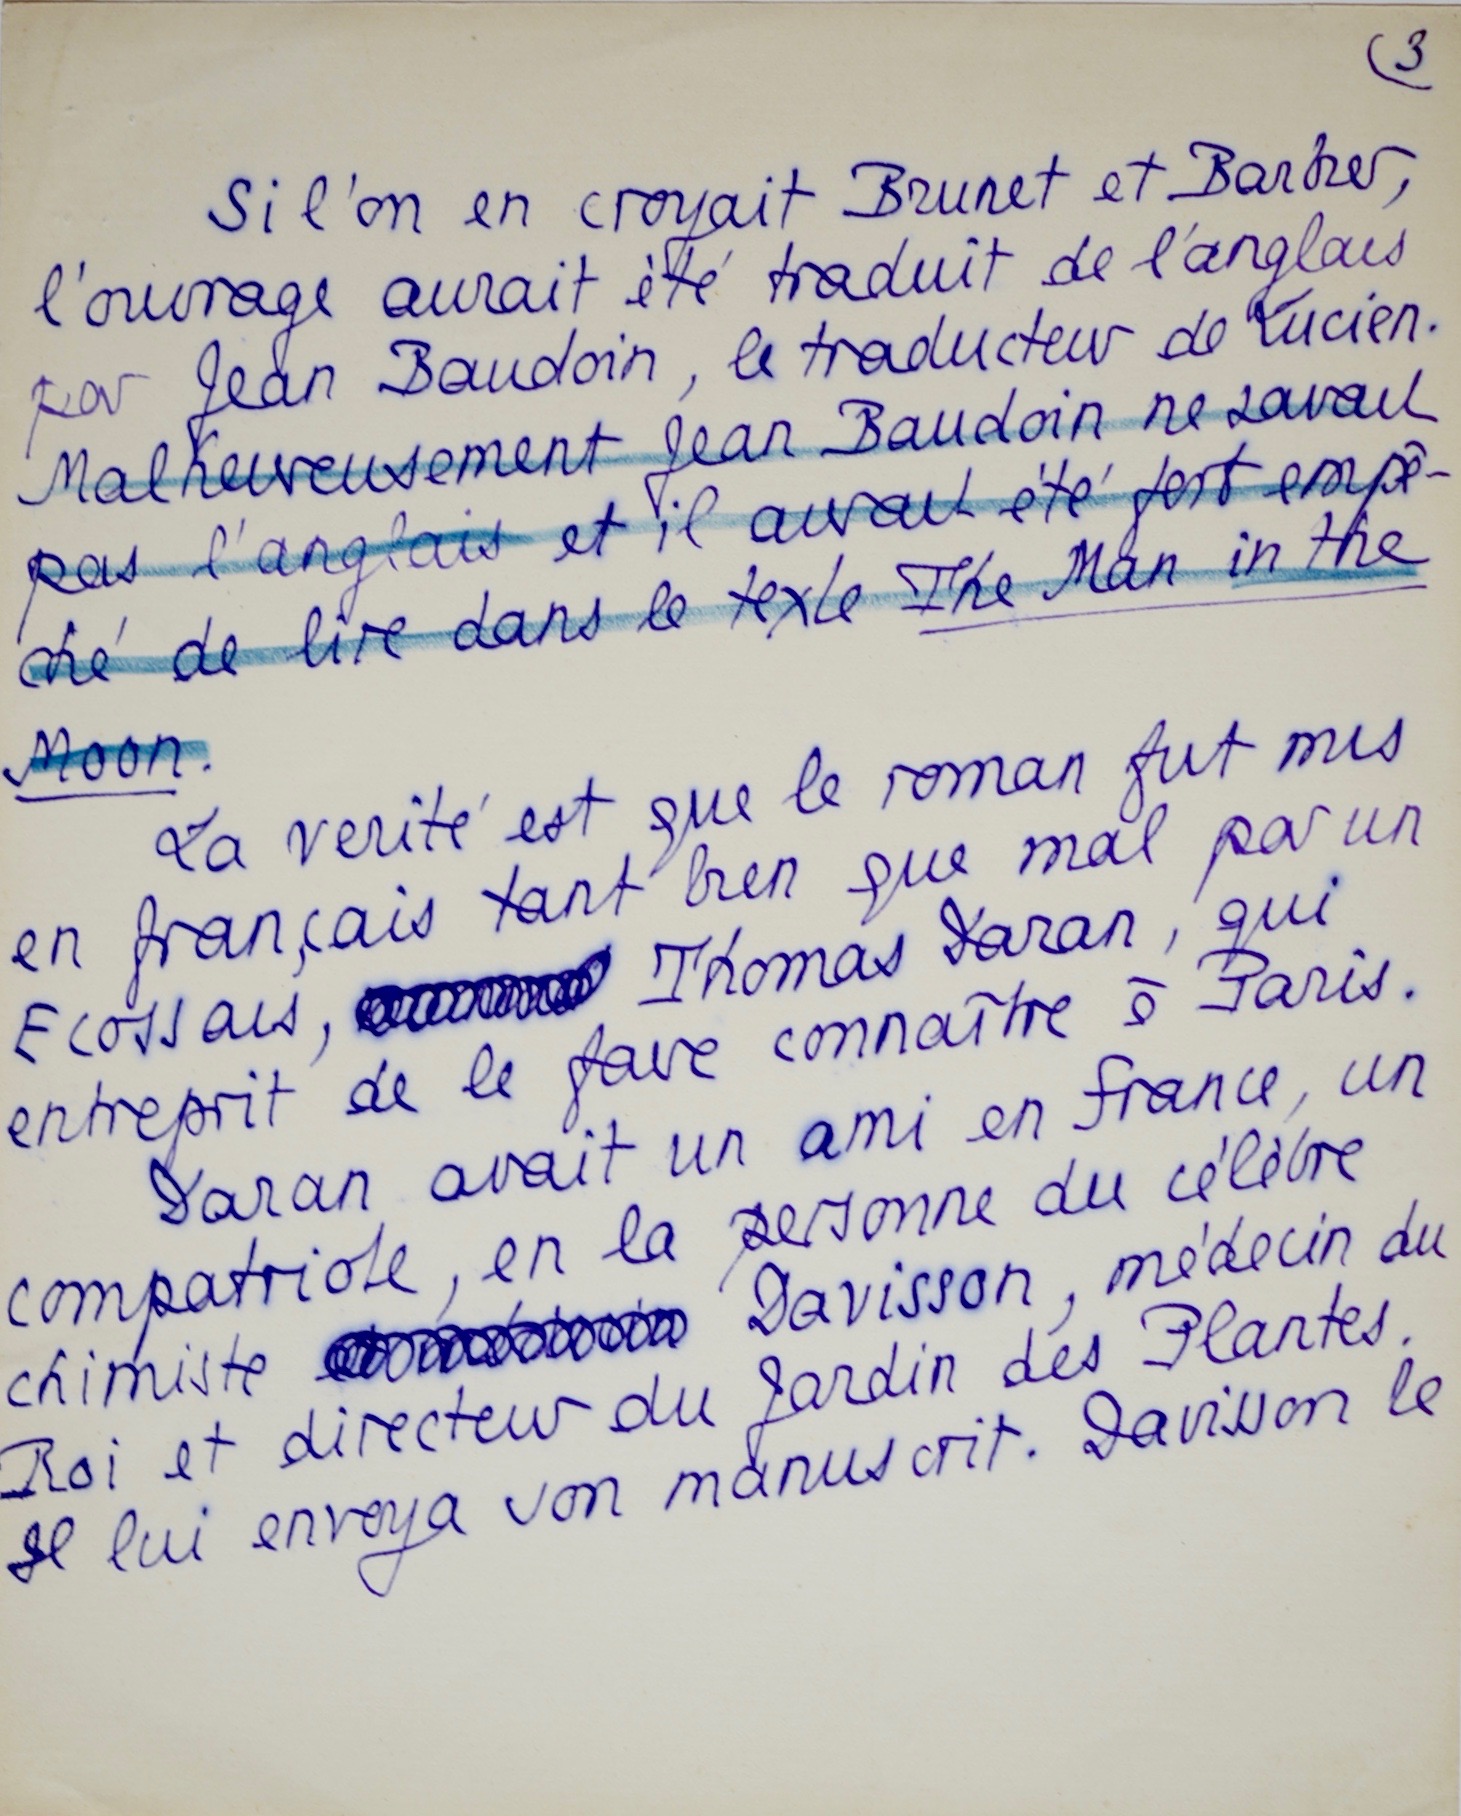 (3
Si l'on en croyait Brunet et Barbier,
l'ouvrage aurait été traduit de l'anglais
par Jean Baudoin, le traducteur de Lucien.
Malheureusement Jean Baudoin ne savait
pas l'anglais et il aurait été fort empê-
ché de lire dans le texte The Man in the
Moon.
La verité est que le roman fut mis
en français tant bien que mal par un
Ecossais, Thomas Daran, qui
entreprit de le faire connaître à Paris.
Daran avait un ami en France, un
compatriote, en la personne du célèbre
chimiste Davisson, médecin du
Roi et directeur du Jardin des Plantes.
Il lui envoya son manuscrit. Davisson le